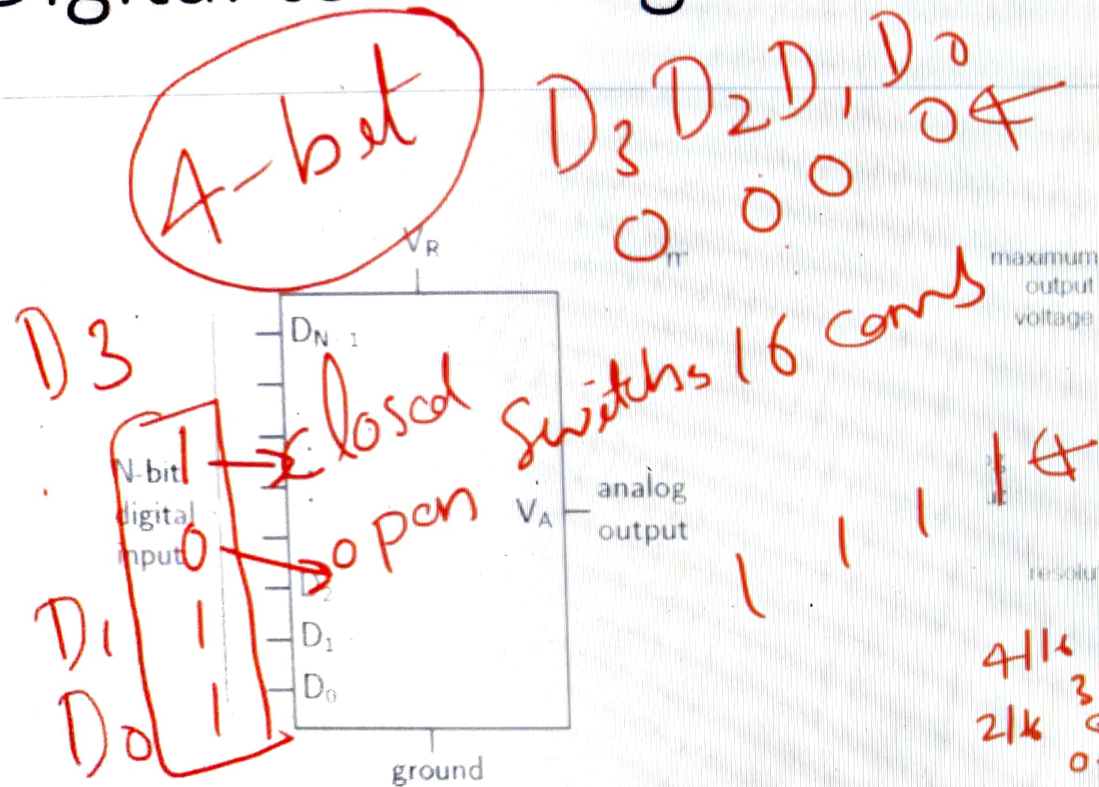 4-bit
D3 D2 D1 D0
0 0 0 0
VR
maximum
output
voltage
D3
DN-1
closed
switchs 16 coms
N-bit 1
digital
input 0
open
VA
analog
output
1 1 1 1
D2
D1 1
D1
D0 1
D0
4/16
3
2/16
ground